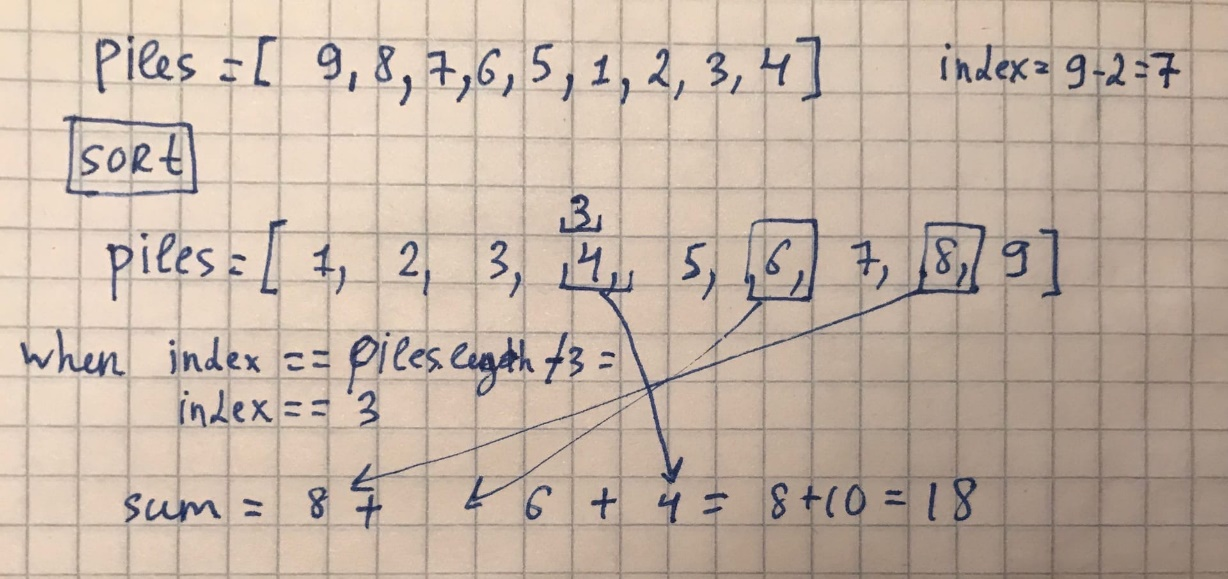 piles = [ 9, 8, 7, 6, 5, 1, 2, 3, 4 ] index = 9-2=7
SORt
3
piles = [ 1, 2, 3, 4, 5, 6, 7, 8, 9 ]
when index == piles.length /3 =
index == 3
sum = 8 + 6 + 4 = 8+10 = 18